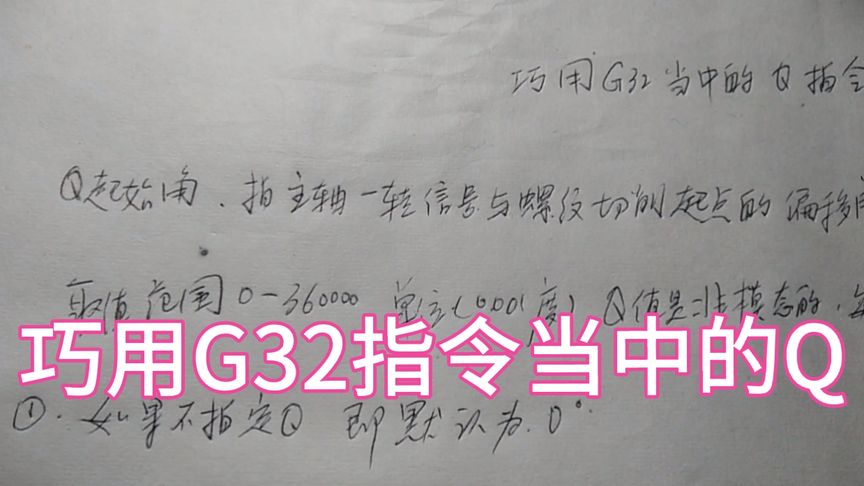 巧用G32当中的Q指令
Q起始角.指主轴一转信号与螺纹切削起点的偏移角
取值范围0-360000 单位(0.001度) Q值是非模态的.每
巧用G32指令当中的Q
①.如果不指定Q 即默认为.0°.